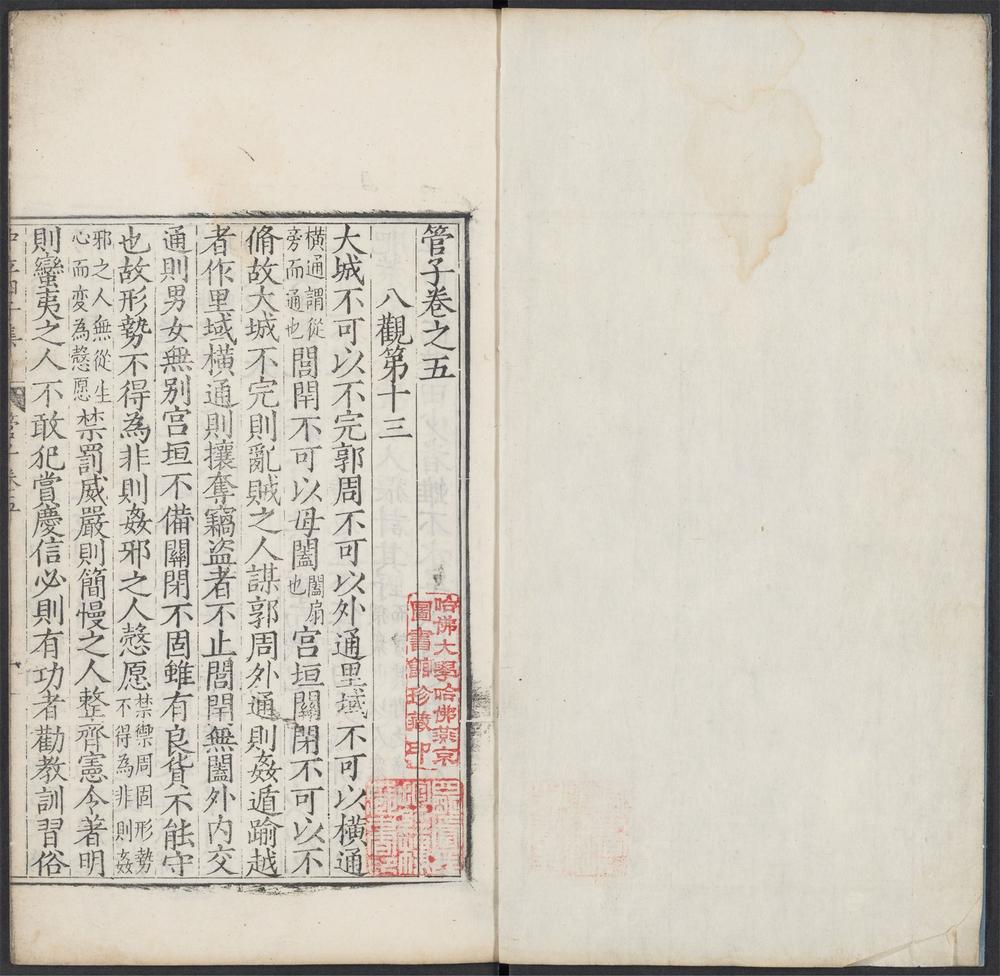 管子卷之五
八觀第十三
大城不可以不完郭周不可以外通里域不可以橫通
橫通謂從旁而通也閭閈不可以毋闔闔扇也宮垣關閉不可以不
脩故大城不完則亂賊之人謀郭周外通則姦遁踰越
者作里域橫通則攘奪竊盜者不止閭閈無闔外內交
通則男女無别宮垣不備關閉不固雖有良貨不能守
也故形勢不得為非則姦邪之人慤愿禁禦周固形勢不得為非則姦
邪之人無從生心而变為慤愿禁罰威嚴則簡慢之人整齊憲令著明
則蠻夷之人不敢犯賞慶信必則有功者勸教訓習俗
哈佛大學哈佛燕京
圖書館珍藏印